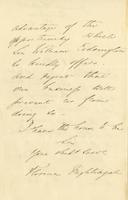 advantage of the
opportunity which
Sir William Codrington
so kindly offers.
And regret that
our business will
prevent us from
doing so.
I have the honor to be
Sir
your obdt Servt
Florence Nightingale